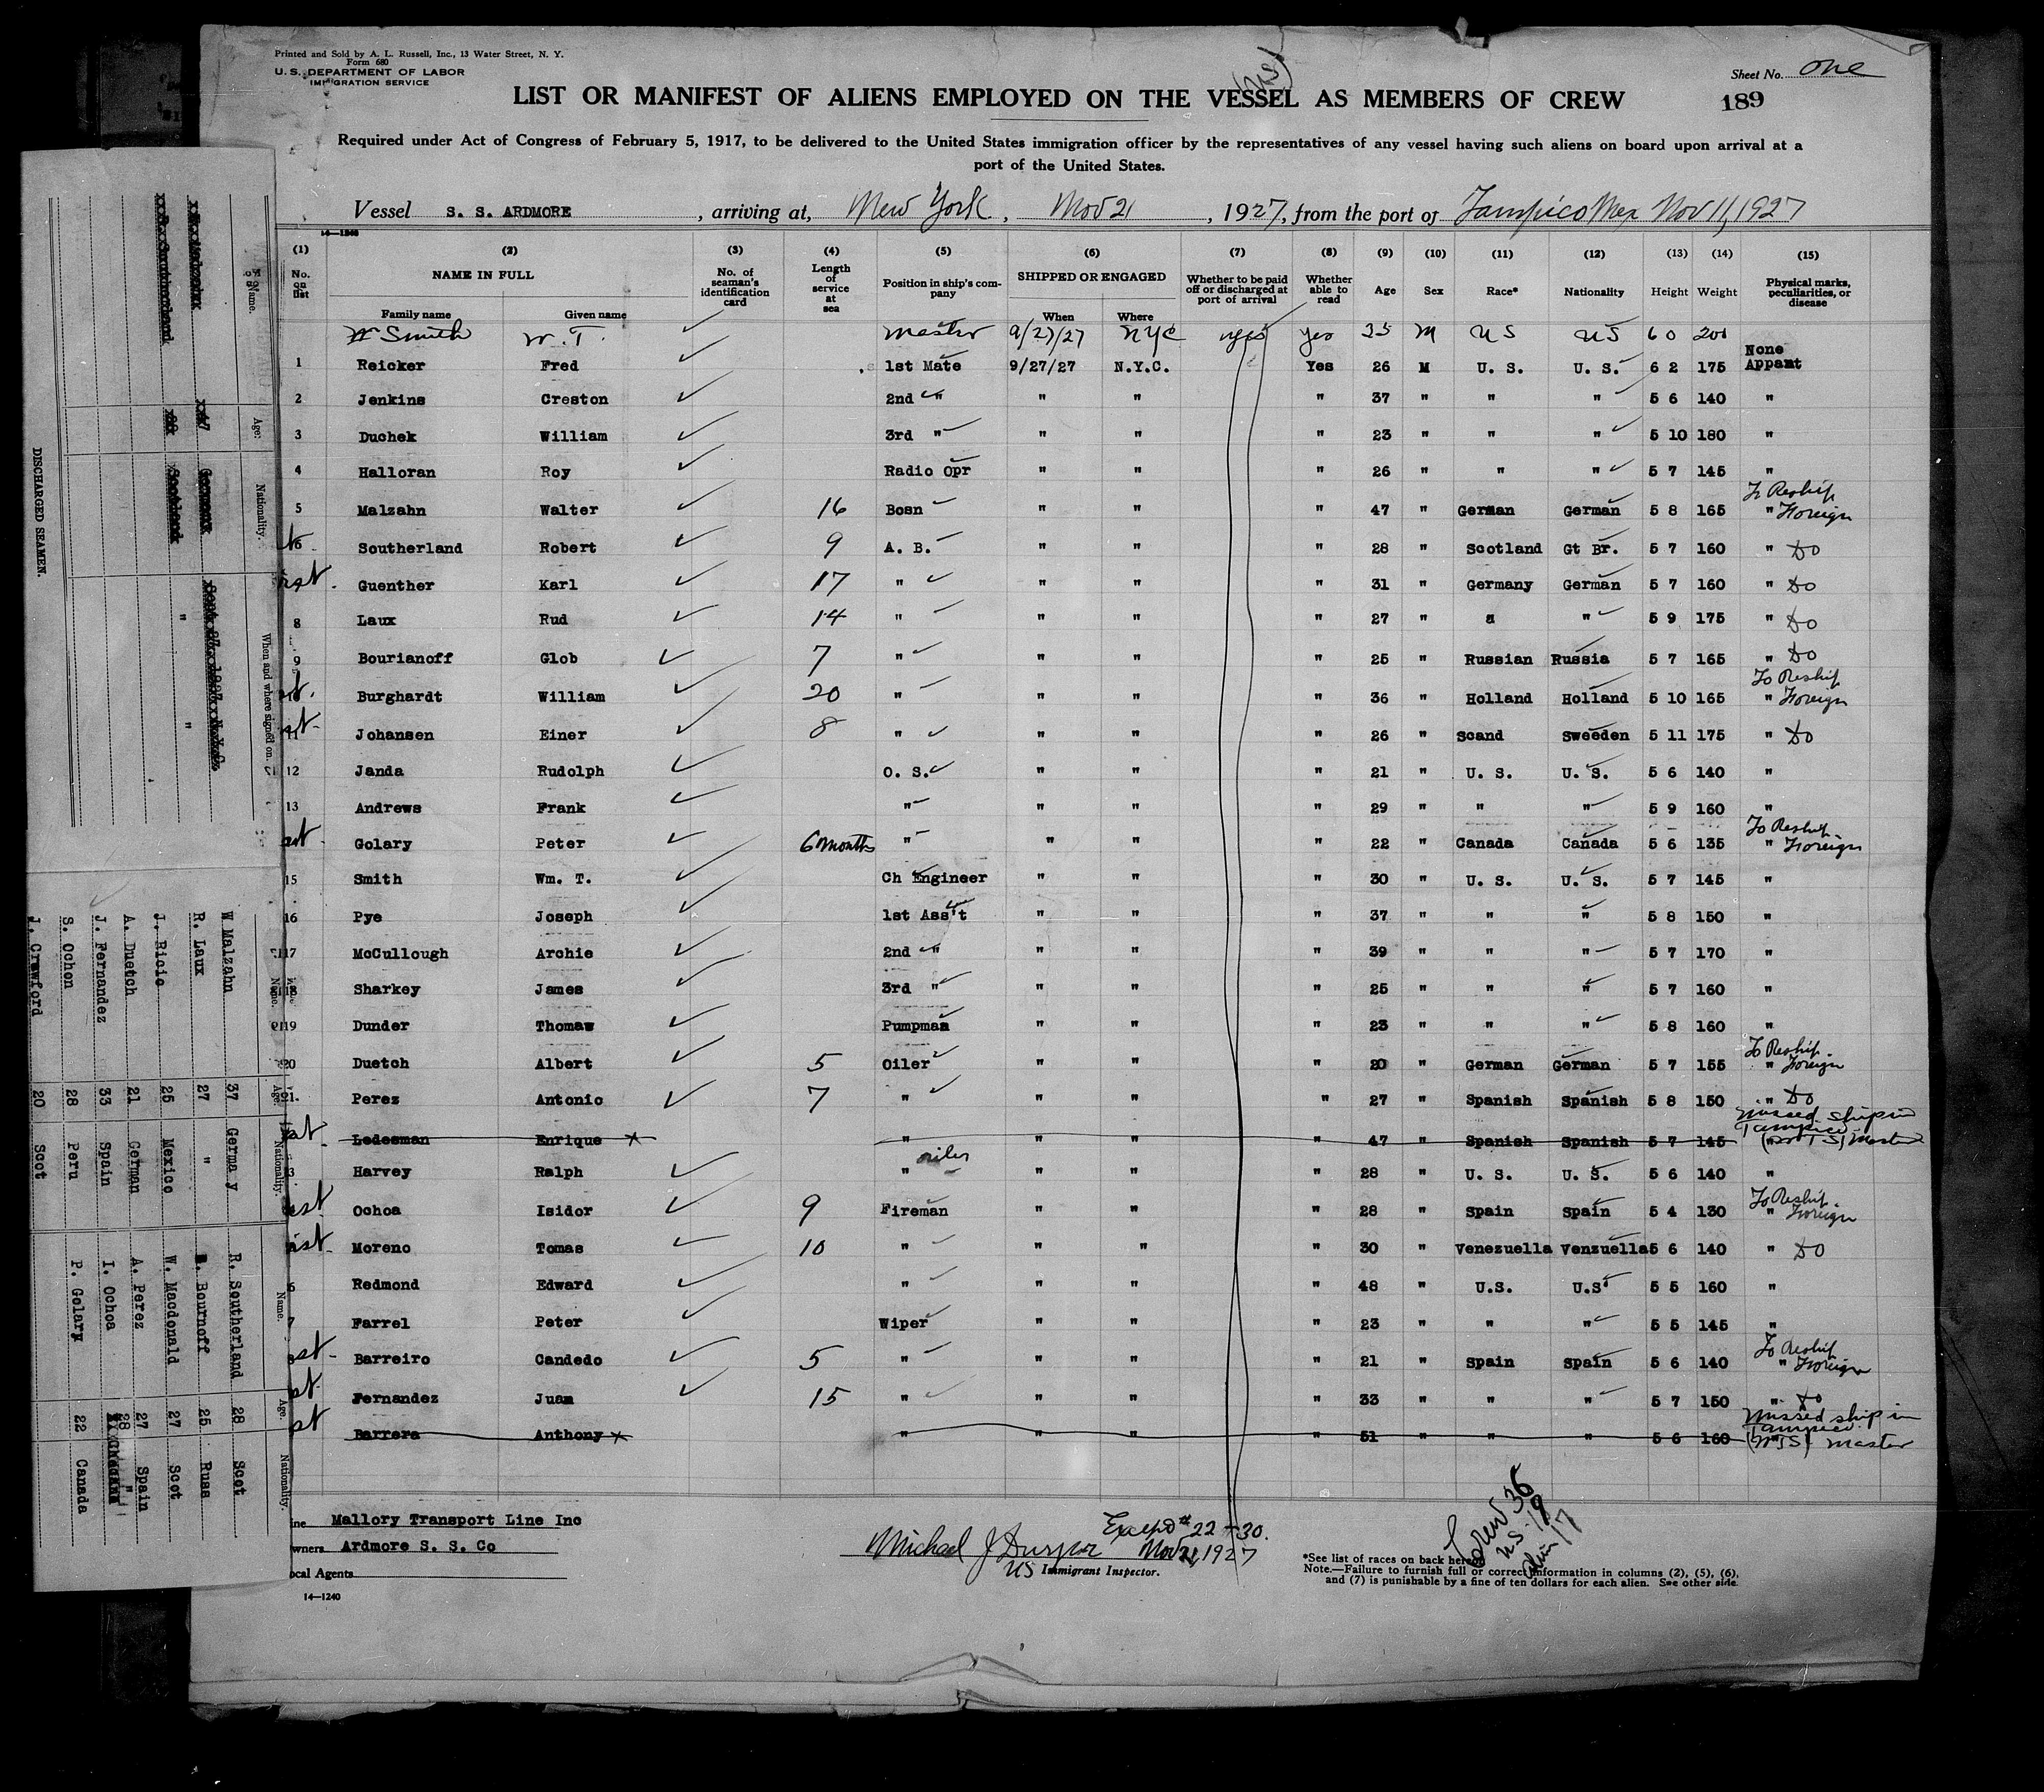 Printed and Sold by A. L. Russell, Inc., 13 Water Street, N. Y.
Form 680
U. S. DEPARTMENT OF LABOR
IMMIGRATION SERVICE
Sheet No. One
LIST OR MANIFEST OF ALIENS EMPLOYED ON THE VESSEL AS MEMBERS OF CREW
189
Required under Act of Congress of February 5, 1917, to be delivered to the United States immigration officer by the representatives of any vessel having such aliens on board upon arrival at a
port of the United States.
Vessel S. S. ARDMORE , arriving at, New York , Nov 21 , 1927, from the port of Tampico Mex Nov 11, 1927
(1) (2) (3) (4) (5) (6) (7) (8) (9) (10) (11) (12) (13) (14) (15)
No. on list NAME IN FULL Family name Given name No. of seaman's identification card Length of service at sea Position in ship's company SHIPPED OR ENGAGED When Where Whether to be paid off or discharged at port of arrival Whether able to read Age Sex Race* Nationality Height Weight Physical marks, peculiarities, or disease
Smith W. T. Master 9/27/27 NYC yes yes 35 M US US 6 0 200
1 Reicker Fred 1st Mate 9/27/27 N.Y.C. Yes 26 M U. S. U. S. 6 2 175 None Appant
2 Jenkins Creston 2nd " " " " 37 " " " 5 6 140 "
3 Duchek William 3rd " " " " 23 " " " 5 10 180 "
4 Halloran Roy Radio Opr " " " 26 " " " 5 7 145 "
5 Malzahn Walter 16 Bosn " " " 47 " German German 5 8 165 " To Reship Foreign
6 Southerland Robert 9 A. B. " " " 28 " Scotland Gt Br. 5 7 160 " Do
Guenther Karl 17 " " " " 31 " Germany German 5 7 160 " Do
8 Laux Rud 14 " " " " 27 " " " 5 9 175 " Do
9 Bourianoff Glob 7 " " " " 25 " Russian Russia 5 7 165 " Do
10 Burghardt William 20 " " " " 36 " Holland Holland 5 10 165 " To Reship Foreign
11 Johansen Einer 8 " " " " 26 " Scand Sweeden 5 11 175 " Do
12 Janda Rudolph O. S. " " " 21 " U. S. U. S. 5 6 140 "
13 Andrews Frank " " " " 29 " " " 5 9 160 "
Golary Peter 6 months " " " " 22 " Canada Canada 5 6 135 " To Reship Foreign
15 Smith Wm. T. Ch Engineer " " " 30 " U. S. U. S. 5 7 145 "
16 Pye Joseph 1st Ass't " " " 37 " " " 5 8 150 "
17 McCullough Archie 2nd " " " " 39 " " " 5 7 170 "
18 Sharkey James 3rd " " " " 25 " " " 5 7 160 "
19 Dunder Thomas Pumpman " " " 23 " " " 5 8 160 "
20 Duetch Albert 5 Oiler " " " 20 " German German 5 7 155 " To Reship Foreign
21 Perez Antonio 7 " " " " 27 " Spanish Spanish 5 8 150 " Do
Ledesman Enrique x " " " " 47 " Spanish Spanish 5 7 145 " Missed ship in Tampico (WTS) Master
Harvey Ralph " oiler " " " 28 " U. S. U. S. 5 6 140 "
Ochoa Isidor 9 Fireman " " " 28 " Spain Spain 5 4 130 " To Reship Foreign
Moreno Tomas 10 " " " " 30 " Venezuella Venzuella 5 6 140 " Do
Redmond Edward " " " " 48 " U.S. U.S 5 5 160 "
Farrel Peter Wiper " " " 23 " " " 5 5 145 "
Barreiro Candedo 5 " " " " 21 " Spain Spain 5 6 140 " To Reship Foreign
Fernandez Juan 15 " " " " 33 " " " 5 7 150 " Do
Barrera Anthony x " " " " 51 " " " 5 6 160 " Missed ship in Tampico (WTS) Master
Mallory Transport Line Inc
Owners Ardmore S. S. Co
Local Agents
14—1240
Except # 22 + 30.
Michael J Nov 21, 1927
US Immigrant Inspector.
Crew 36
US-19
Alien 17
*See list of races on back hereof
Note.—Failure to furnish full or correct information in columns (2), (5), (6),
and (7) is punishable by a fine of ten dollars for each alien. See other side.
DISCHARGED SEAMEN.
Name. Age. Nationality. When and where signed on.
W Malzahn 37 Germa y
R. Laux 27 "
J. Ricio 25 Mexico
A. Duetch 21 German
J. Fernandez 33 Spain
S. Ochon 28 Peru
I. Crawford 20 Scot
Name. Age. Nationality.
R. Southerland 28 Scot
Bournoff 25 Russ
W. Macdonald 27 Scot
A. Perez 27 Spain
I. Ochoa 28 "
P. Golary 22 Canada